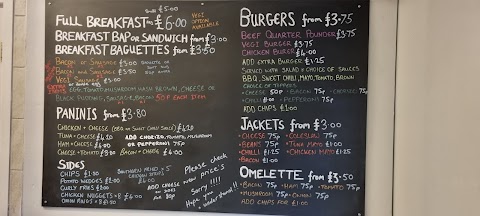 Now £5.00
FULL BREAKFAST £6.00
VEGI OPTION AVAILABLE
BREAKFAST BAP OR SANDWICH from £3.00
BREAKFAST BAGUETTES from £3.50
BACON OR SAUSAGE £3.00
BACON AND SAUSAGE £3.50
VEGI SAUSAGE
EXTRA ITEMS
EGG, TOMATO, MUSHROOM, HASH BROWN, CHEESE OR
BLACK PUDDING, SAUSAGE, BACON 50P EACH ITEM
PANINIS from £3.80
CHICKEN + CHEESE (BBQ OR SWEET CHILLI SAUCE) £4.20
TUNA + CHEESE £4.20
HAM + CHEESE £4.00
CHEESE + TOMATO £3.80
BACON + CHEESE £4.00
ADD CHORIZO, TOMATO, MUSHROOM
OR PEPPERONI 75p
SIDES
CHIPS £1.50
POTATO WEDGES £2.00
CURLY FRIES £2.00
CHICKEN NUGGETS x 8 £4.00
ONION RINGS x 8
ADD CHEESE
Please check
new price's
Sorry !!!!
Hope you
understand!!
BURGERS from £3.75
BEEF QUARTER POUNDER £3.75
VEGI BURGER £3.75
CHICKEN BURGER £4.00
ADD EXTRA BURGER £1.25
SERVED WITH SALAD + CHOICE OF SAUCES
BBQ, SWEET CHILLI, MAYO, TOMATO, BROWN
CHOICE OF TOPPINGS
• CHEESE 50p • BACON 75p
• CHILLI • PEPPERONI 75p
ADD CHIPS £1.00
JACKETS from £3.00
• CHEESE 75p • COLESLAW 75p
• BEANS 75p • TUNA MAYO £1.00
• CHILLI £1.25 • CHICKEN MAYO £1.25
• BACON £1.00
OMELETTE from £3.50
• BACON 75p • HAM 75p • TOMATO 75p
• MUSHROOM 75p • ONION 75p
ADD CHIPS FOR £1.00